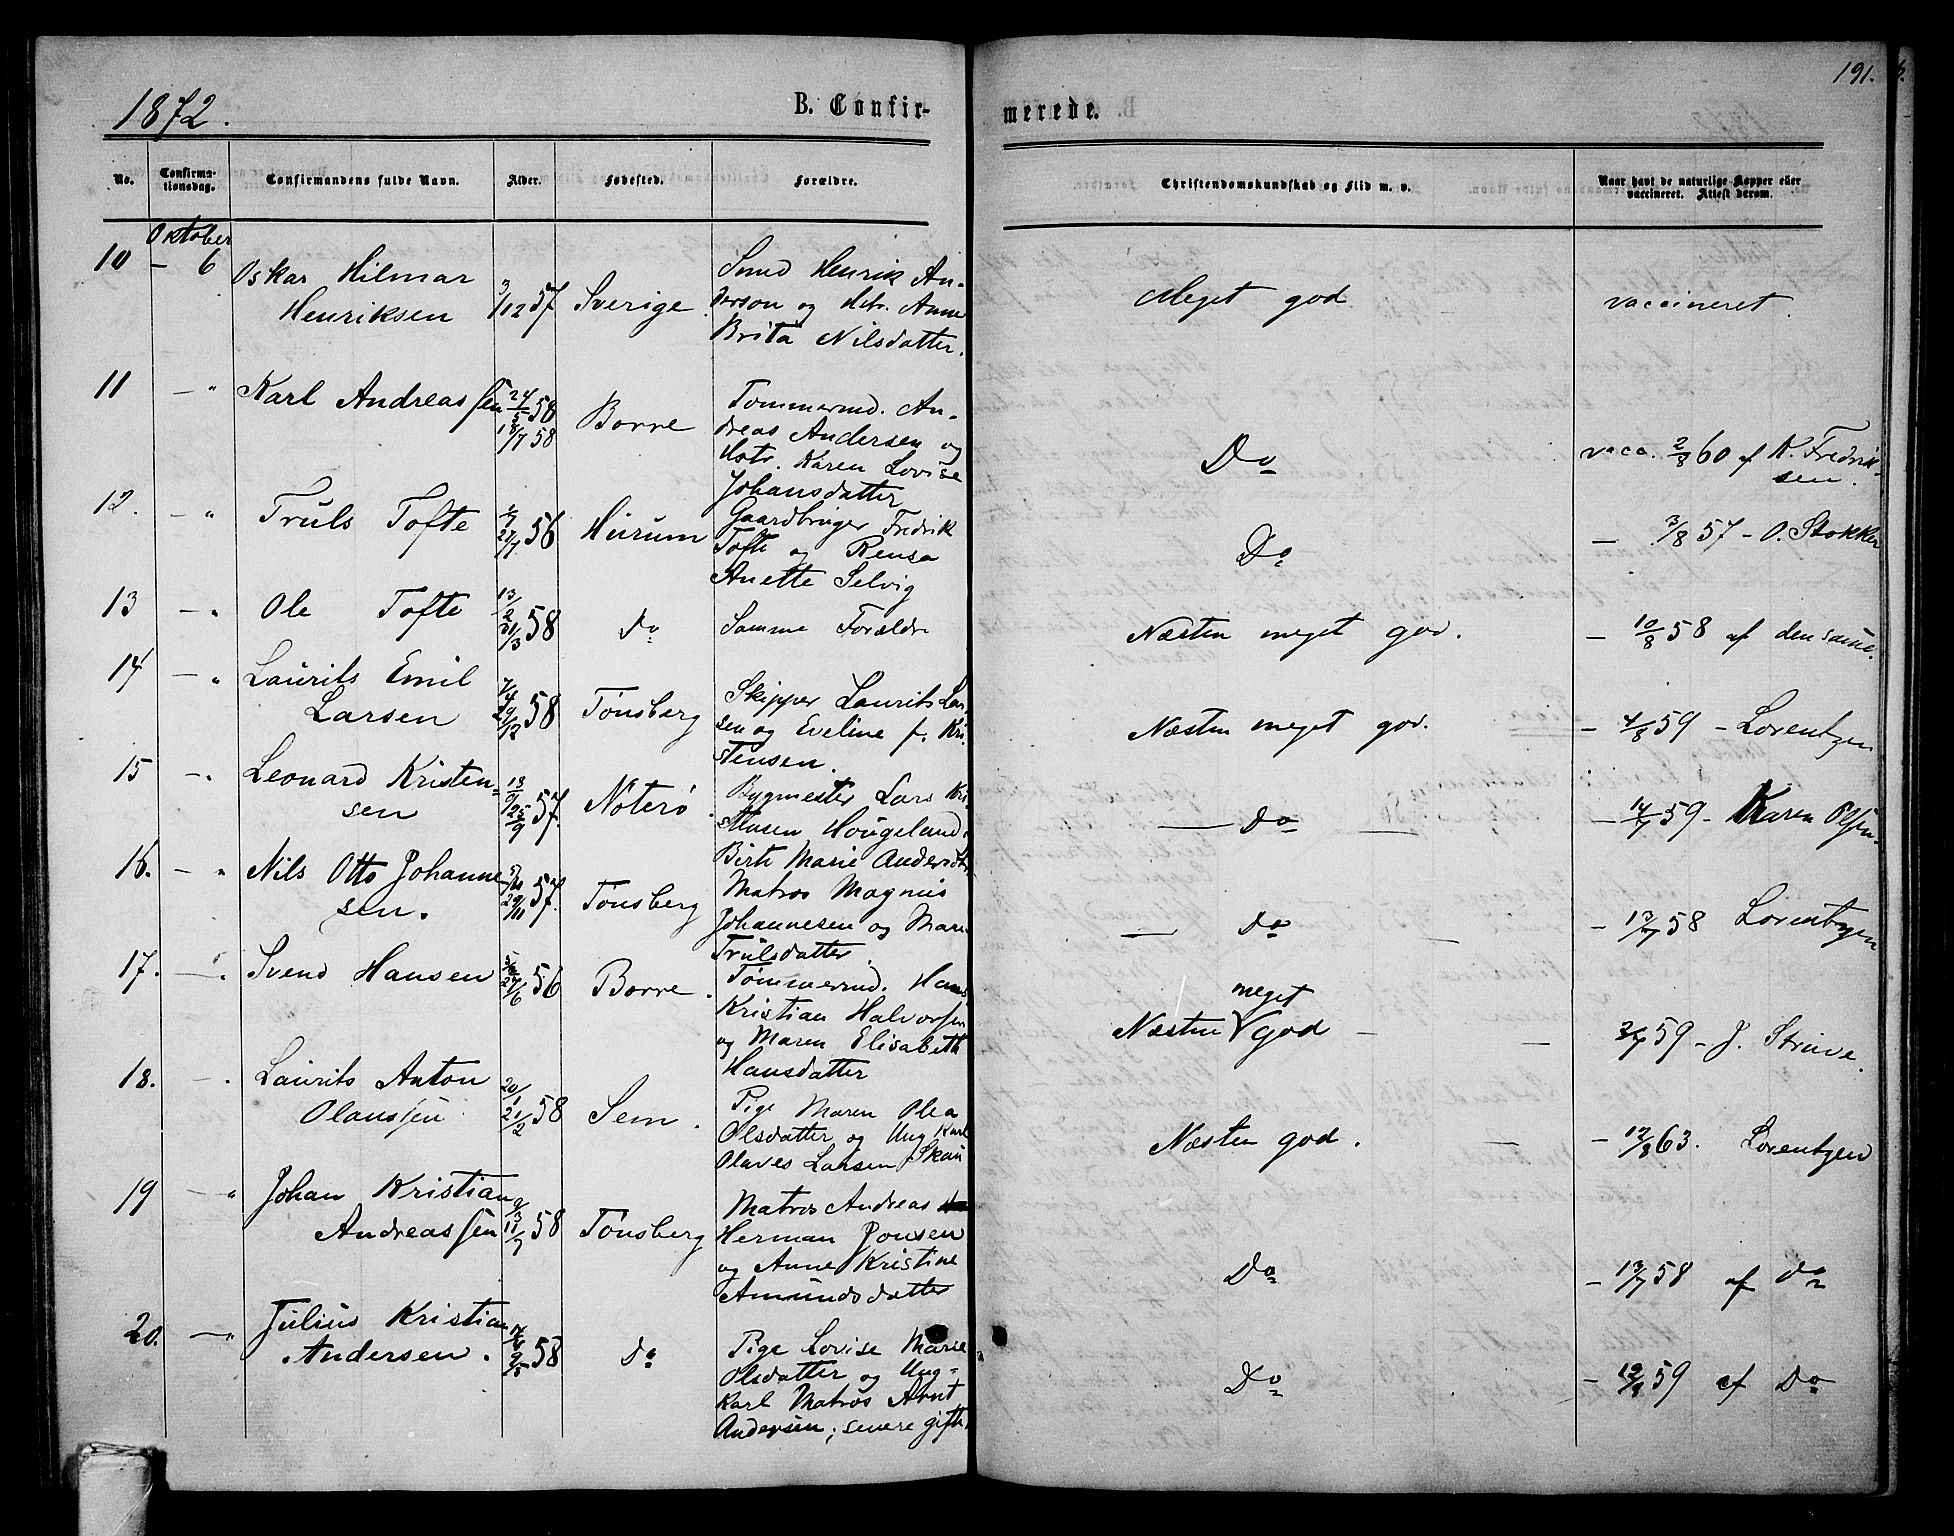 1872.
B. Confir-
merede.
191.
No.
Confirma-
tionsdag.
Confirmandens fulde Navn.
Alder.
Fødested.
Forældre.
Christendomskundskab og Flid m. v.
Naar havt de naturlige Kopper eller
vaccineret. Attest derom.
Oktober
10 — 6 Oskar Hilmar
Henriksen
3/12 57 Sverige.
Smed Henrik An-
derson og Hstr. Anne
Brita Nilsdatter.
Meget god
vaccineret.
11 — " Karl Andreassen
24/5 58
18/7 58
Borre
Tømmermd. An-
dreas Andersen og
Hstr. Karen Lovise
Johansdatter
Do
vacc. 2/8 60 af K. Fredrik-
sen.
12. — " Truls Tofte
56 Hurum
Gaardbruger Fredrik
Tofte og Rensa
Anette Selvig
Do
— 3/8 57 - O. Stokker
13 — " Ole Tofte
13/2
21/3 58 Do
Samme Forældr
Næsten meget god.
— 10/8 58 af den samme.
14 — " Laurits Emil
Larsen
58 Tønsberg
Skipper Laurits Lar-
sen og Eveline f. Kri-
stensen.
Næsten meget god.
— 4/8 59 - Lorentzen
15 — " Leonard Kristen-
sen
18/9
25/9 57. Nøterø.
Bygmester Lars Kri-
stensen Hougeland.
Birte Marie Andersdtr
— Do —
— 14/7 59 - Karen Olsen
16. — " Nils Otto Johanne-
sen.
29/11 57. Tønsberg
Matros Magnus
Johannesen og Maren
Trulsdatter.
— Do —
— 13/7 58 Lorentzen
17. — " Svend Hansen
56 Borre.
Tømmermd. Hans
Kristian Halvorsen
og Maren Elisabeth
Hansdatter
meget
Næsten god —
59 - J. Struve.
18. — " Laurits Anton
Olaussen
20/1
21/2 58 Sem.
Pige Maren Olea
Olsdatter og Ung Karl
Olaves Larsen Skau
Næsten god. —
— 12/8 63. Lorentzen
19 — " Johan Kristian
Andreassen
9/3
58 Tønsberg
Matros Andreas
Herman Jonsen
og Anne Kristine
Amundsdatter
Do
— 13/7 58 af Do
20. — " Julius Kristian
Andersen.
58 Do
Pige Lovise Marie
Olsdatter og Ung-
karl Matros Arnt
Andersen; senere gifte.
Do
— 59 af Do